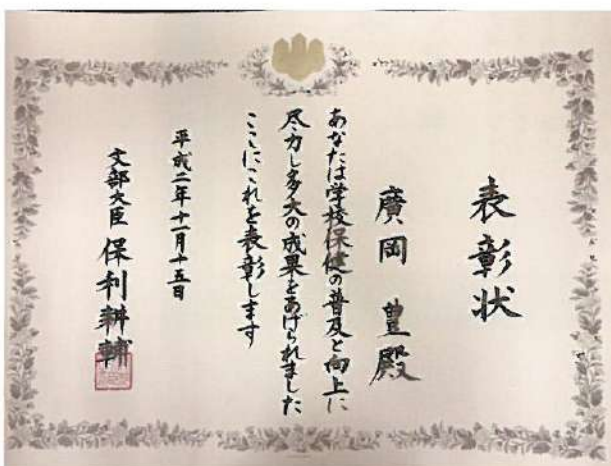 表彰状
廣岡 豊殿
あなたは学校保健の普及と向上に
尽力し多大の成果をあげられました
ここにこれを表彰します
平成二年十一月十五日
文部大臣 保利耕輔